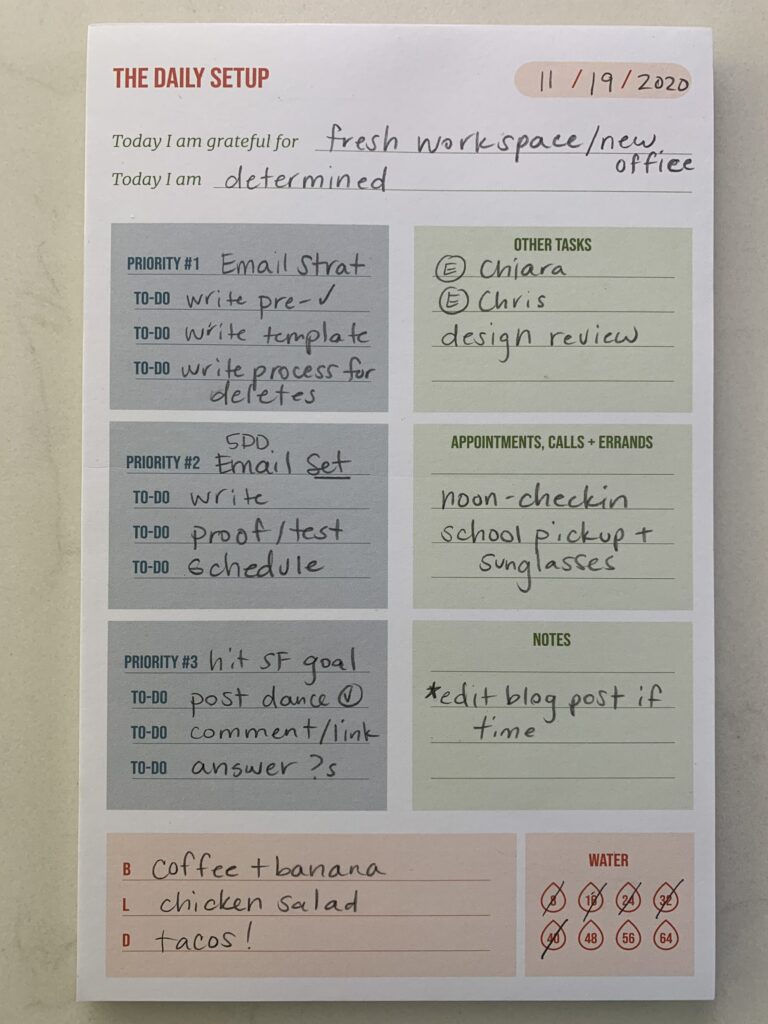 THE DAILY SETUP
11 / 19 / 2020
Today I am grateful for fresh workspace/new
office
Today I am determined
PRIORITY #1 Email Strat
TO-DO write pre-✓
TO-DO write template
TO-DO write process for
deletes
OTHER TASKS
Ⓔ Chiara
Ⓔ Chris
design review
5DD
PRIORITY #2 Email Set
TO-DO write
TO-DO proof/test
TO-DO schedule
APPOINTMENTS, CALLS + ERRANDS
noon-checkin
school pickup +
sunglasses
PRIORITY #3 hit SF goal
TO-DO post dance ✓
TO-DO comment/link
TO-DO answer ?s
NOTES
*edit blog post if
time
B coffee + banana
L chicken salad
D tacos!
WATER
8 16 24 32
40 48 56 64